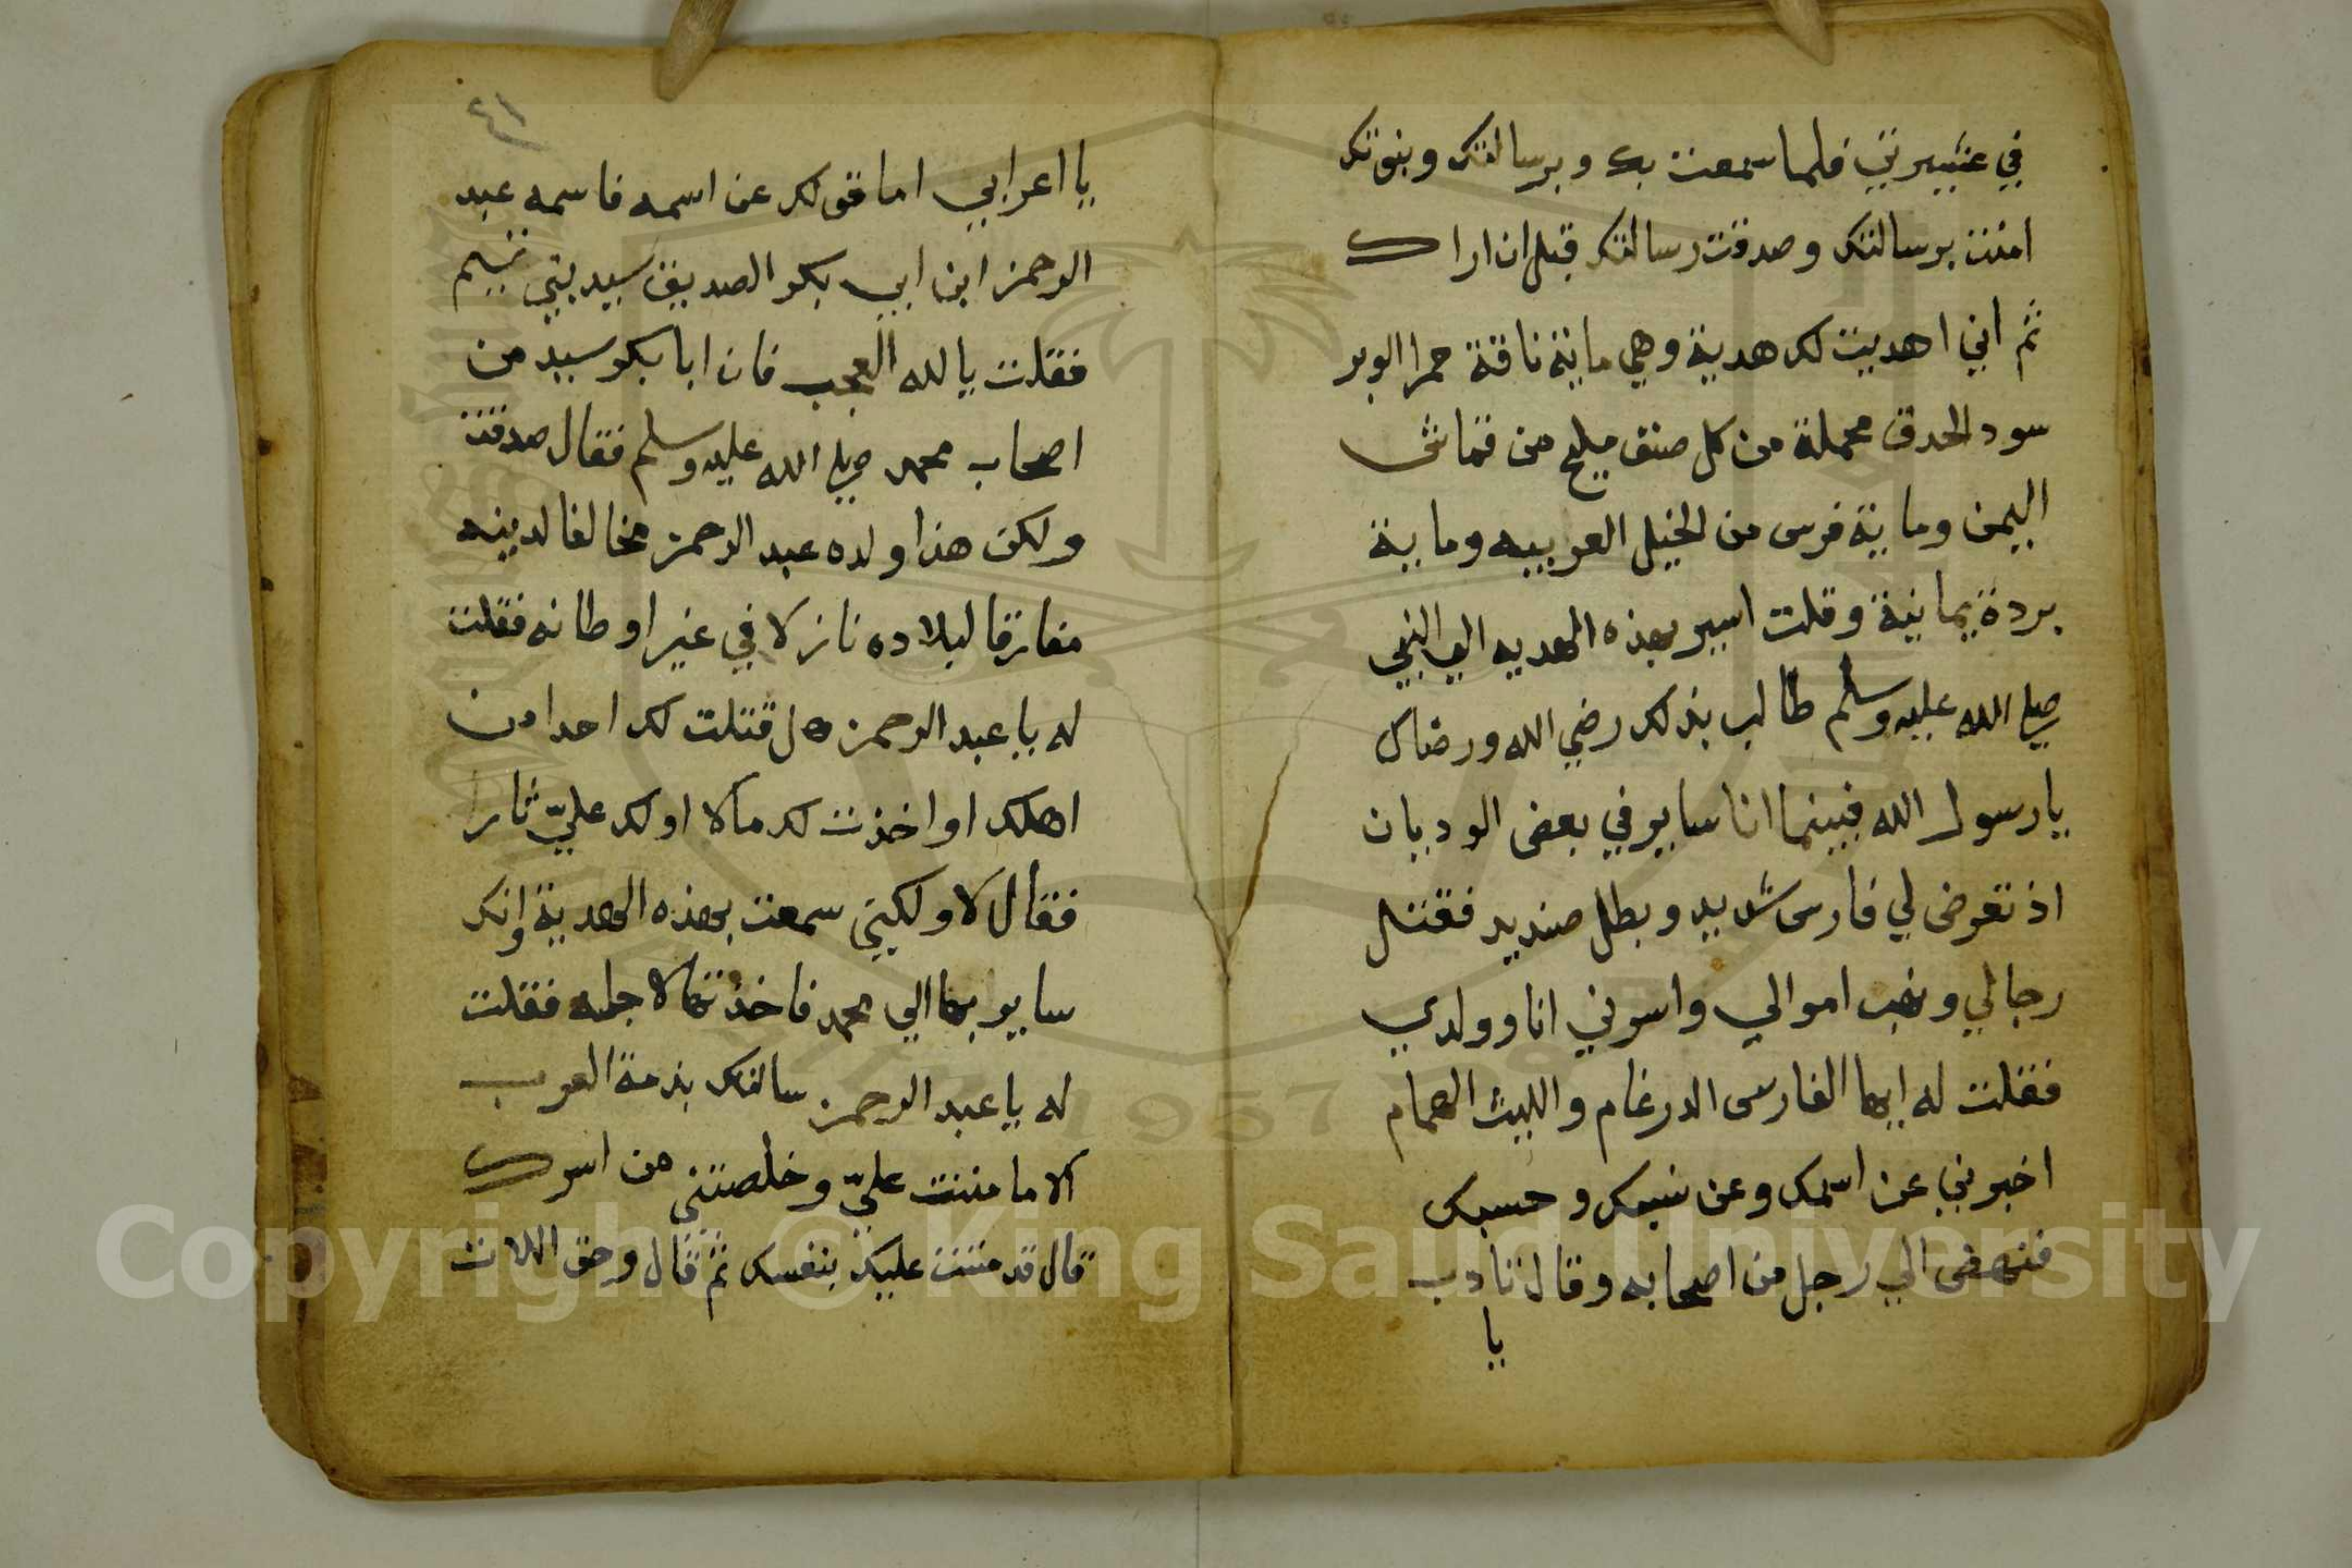 في عشيرتي فلما سمعت بك وبرسالتك وبنوتك
امنت برسالتك وصدقت رسالتك قبل ان اراك
ثم اني اهديت لك هدية وهي ماية ناقة حمر الوبر
سود الحدق محملة من كل صنف مليح من قماش
اليمن وماية فرس من الخيل العربيه وماية
بردة يمانية وقلت اسير بهذه الهديه الي النبي
صلي الله عليه وسلم طالب بذلك رضي الله ورضاك
يا رسول الله فبينما انا ساير في بعض الوديان
اذ تعرض لي فارس شديد وبطل صنديد فقتل
رجالي ونهب اموالي واسرني انا وولدي
فقلت له ايها الفارس الدرغام والليث الهمام
اخبرني عن اسمك وعن نسبك وحسبك
فنهض الي رجل من اصحابه وقال تادب
يا
٤١
يا اعرابي اما قولك عن اسمه فاسمه عبد
الرحمن ابن ابي بكر الصديق سيد بني تيم
فقلت يا لله العجب فان ابا بكر سيد من
اصحاب محمد صلي الله عليه وسلم فقال صدقت
ولكن هذا ولده عبد الرحمن مخالفا لدينه
مفارقا لبلاده نازلا في غير اوطانه فقلت
له يا عبد الرحمن هل قتلت لك احدا من
اهلك او اخذت لك مالا او لك عليّ ثارا
فقال لا ولكني سمعت بهذه الهدية وانك
ساير بها الي محمد فاخذتها لاجله فقلت
له يا عبد الرحمن سالتك بذمة العرب
الا ما مننت عليّ وخلصتني من اسرك
قال قد مننت عليك بنفسك ثم قال وحق اللات
Copyright © King Saud University
1957